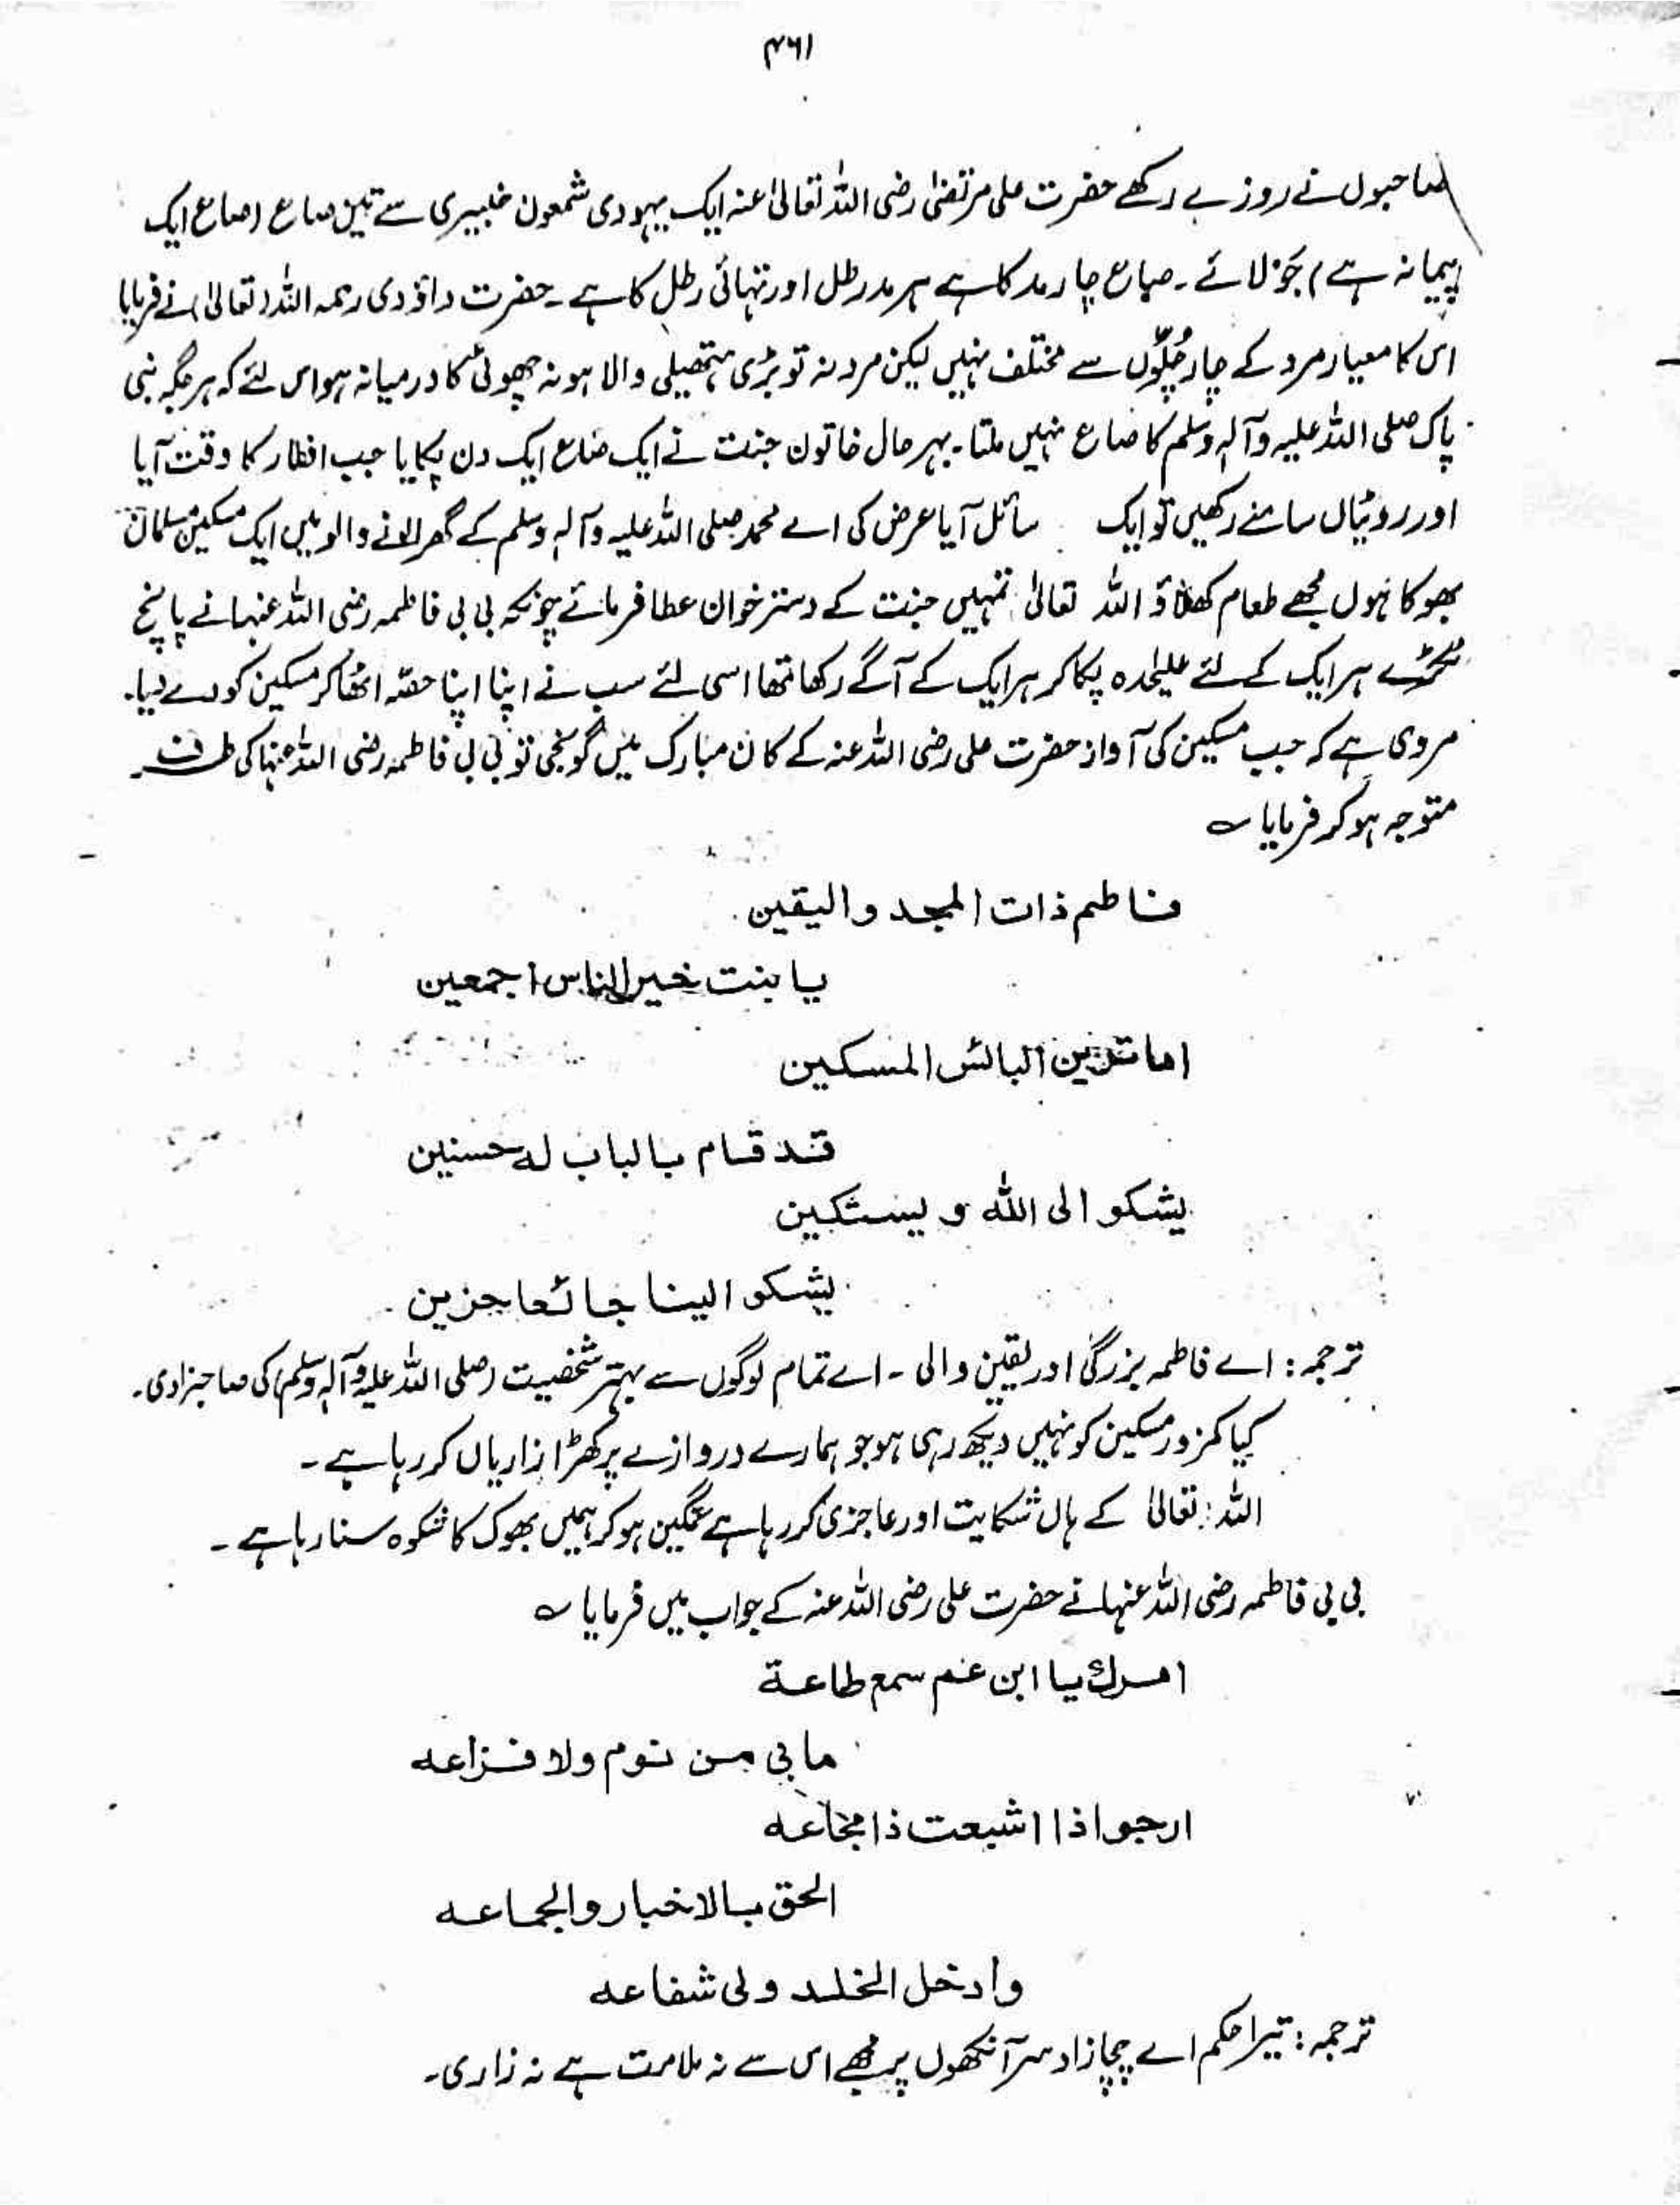 ۴۶۱
صاحبوں نے روزے رکھے حضرت علی مرتضیٰ رضی اللہ تعالیٰ عنہ ایک یہودی شمعون خیبیری سے تین صاع (صاع ایک
پیمانہ ہے) جَو لائے ۔ صاع چار مد کا ہے ہر مد رطل اور تہائی رطل کا ہے ۔ حضرت داؤدی رحمہ اللہ (تعالیٰ) نے فرمایا
اس کا معیار مرد کے چار چُلّوں سے مختلف نہیں لیکن مرد نہ تو بڑی ہتھیلی والا ہو نہ چھوٹی کا درمیانہ ہو اس لئے کہ ہر جگہ نبی
پاک صلی اللہ علیہ وآلہ وسلم کا صاع نہیں ملتا ۔ بہر حال خاتون جنت نے ایک صاع ایک دن پکایا جب افطار کا وقت آیا
اور روٹیاں سامنے رکھیں تو ایک سائل آیا عرض کی اے محمد صلی اللہ علیہ وآلہ وسلم کے گھرالانے والو میں ایک مسکین مسلمان
بھوکا ہوں مجھے طعام کھلاؤ اللہ تعالیٰ تمہیں جنت کے دسترخوان عطا فرمائے چونکہ بی بی فاطمہ رضی اللہ عنہا نے پانچ
ٹکڑے ہر ایک کے لئے علیٰحدہ پکا کر ہر ایک کے آگے رکھا تھا اسی لئے سب نے اپنا اپنا حصّہ اٹھا کر مسکین کو دے دیا۔
مروی ہے کہ جب مسکین کی آواز حضرت علی رضی اللہ عنہ کے کان مبارک میں گونجی تو بی بی فاطمہ رضی اللہ عنہا کی طرف
متوجہ ہو کر فرمایا ؎
فاطم ذات المجد والیقین
یا بنت خیر الناس اجمعین
اما ترین البائس المسکین
قد قام بالباب له حسنین
یشکو الی الله و یستکین
یشکو الینا جائعا حزین
ترجمہ : اے فاطمہ بزرگی اور یقین والی ۔ اے تمام لوگوں سے بہتر شخصیت (صلی اللہ علیہ وآلہ وسلم) کی صاحبزادی۔
کیا کمزور مسکین کو نہیں دیکھ رہی ہو جو ہمارے دروازے پر کھڑا زاریاں کر رہا ہے ۔
اللہ تعالیٰ کے ہاں شکایت اور عاجزی کر رہا ہے غمگین ہو کر ہمیں بھوک کا شکوہ سنا رہا ہے ۔
بی بی فاطمہ رضی اللہ عنہا نے حضرت علی رضی اللہ عنہ کے جواب میں فرمایا ؎
امرك یا ابن عم سمع طاعة
مابی من نوم ولا فزاعه
ارجو اذا اشبعت ذا مجاعه
الحق بالاخبار والجماعه
وادخل الخلد ولی شفاعه
ترجمہ : تیرا حکم اے چچازاد سر آنکھوں پر مجھے اس سے نہ ملامت ہے نہ زاری۔